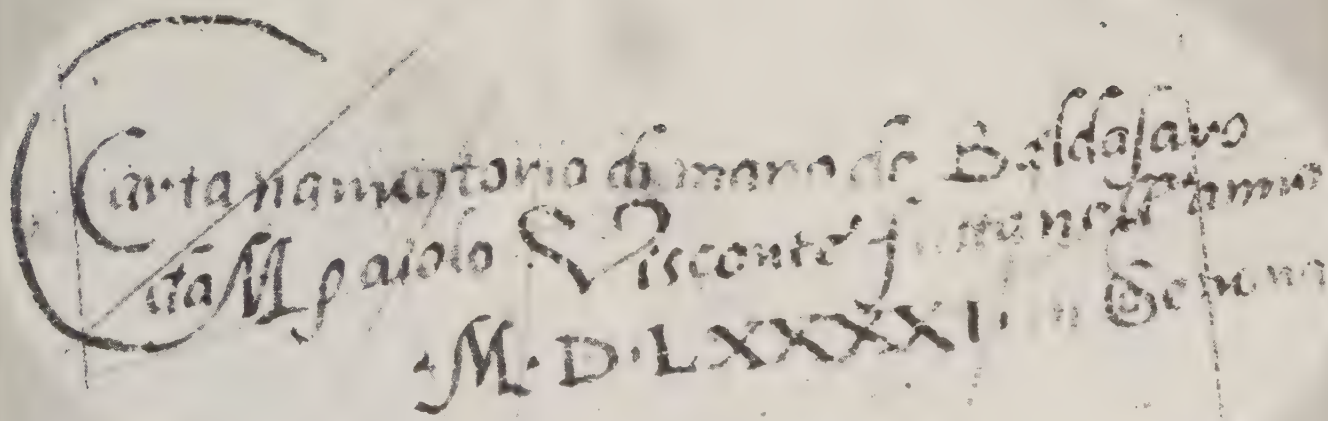 Carta navigatoria di mano de Baldasaro
da Maiolo Visconte fatta nell'anno
·M·D·LXXXXI· in Genova